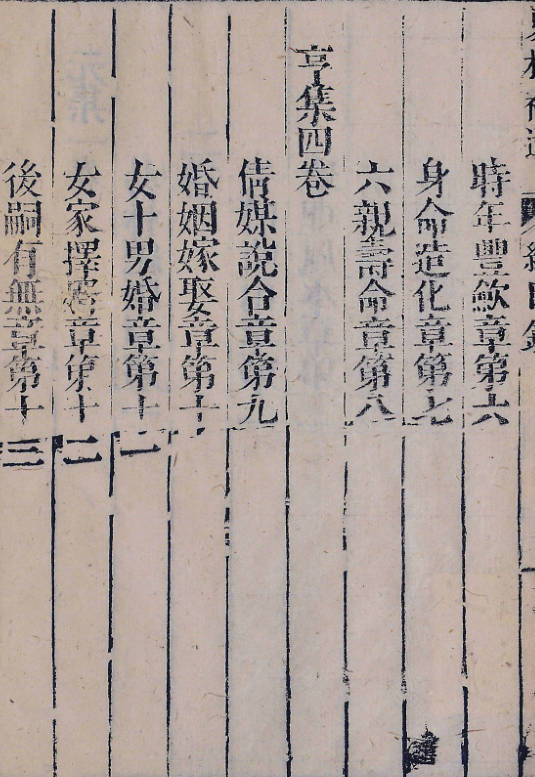 時年豐歉章第六
身命造化章第七
六親壽命章第八
亨集四卷
倩媒說合章第九
婚姻嫁娶章第十
女卜男婚章第十一
女家擇壻章第十二
後嗣有無章第十三